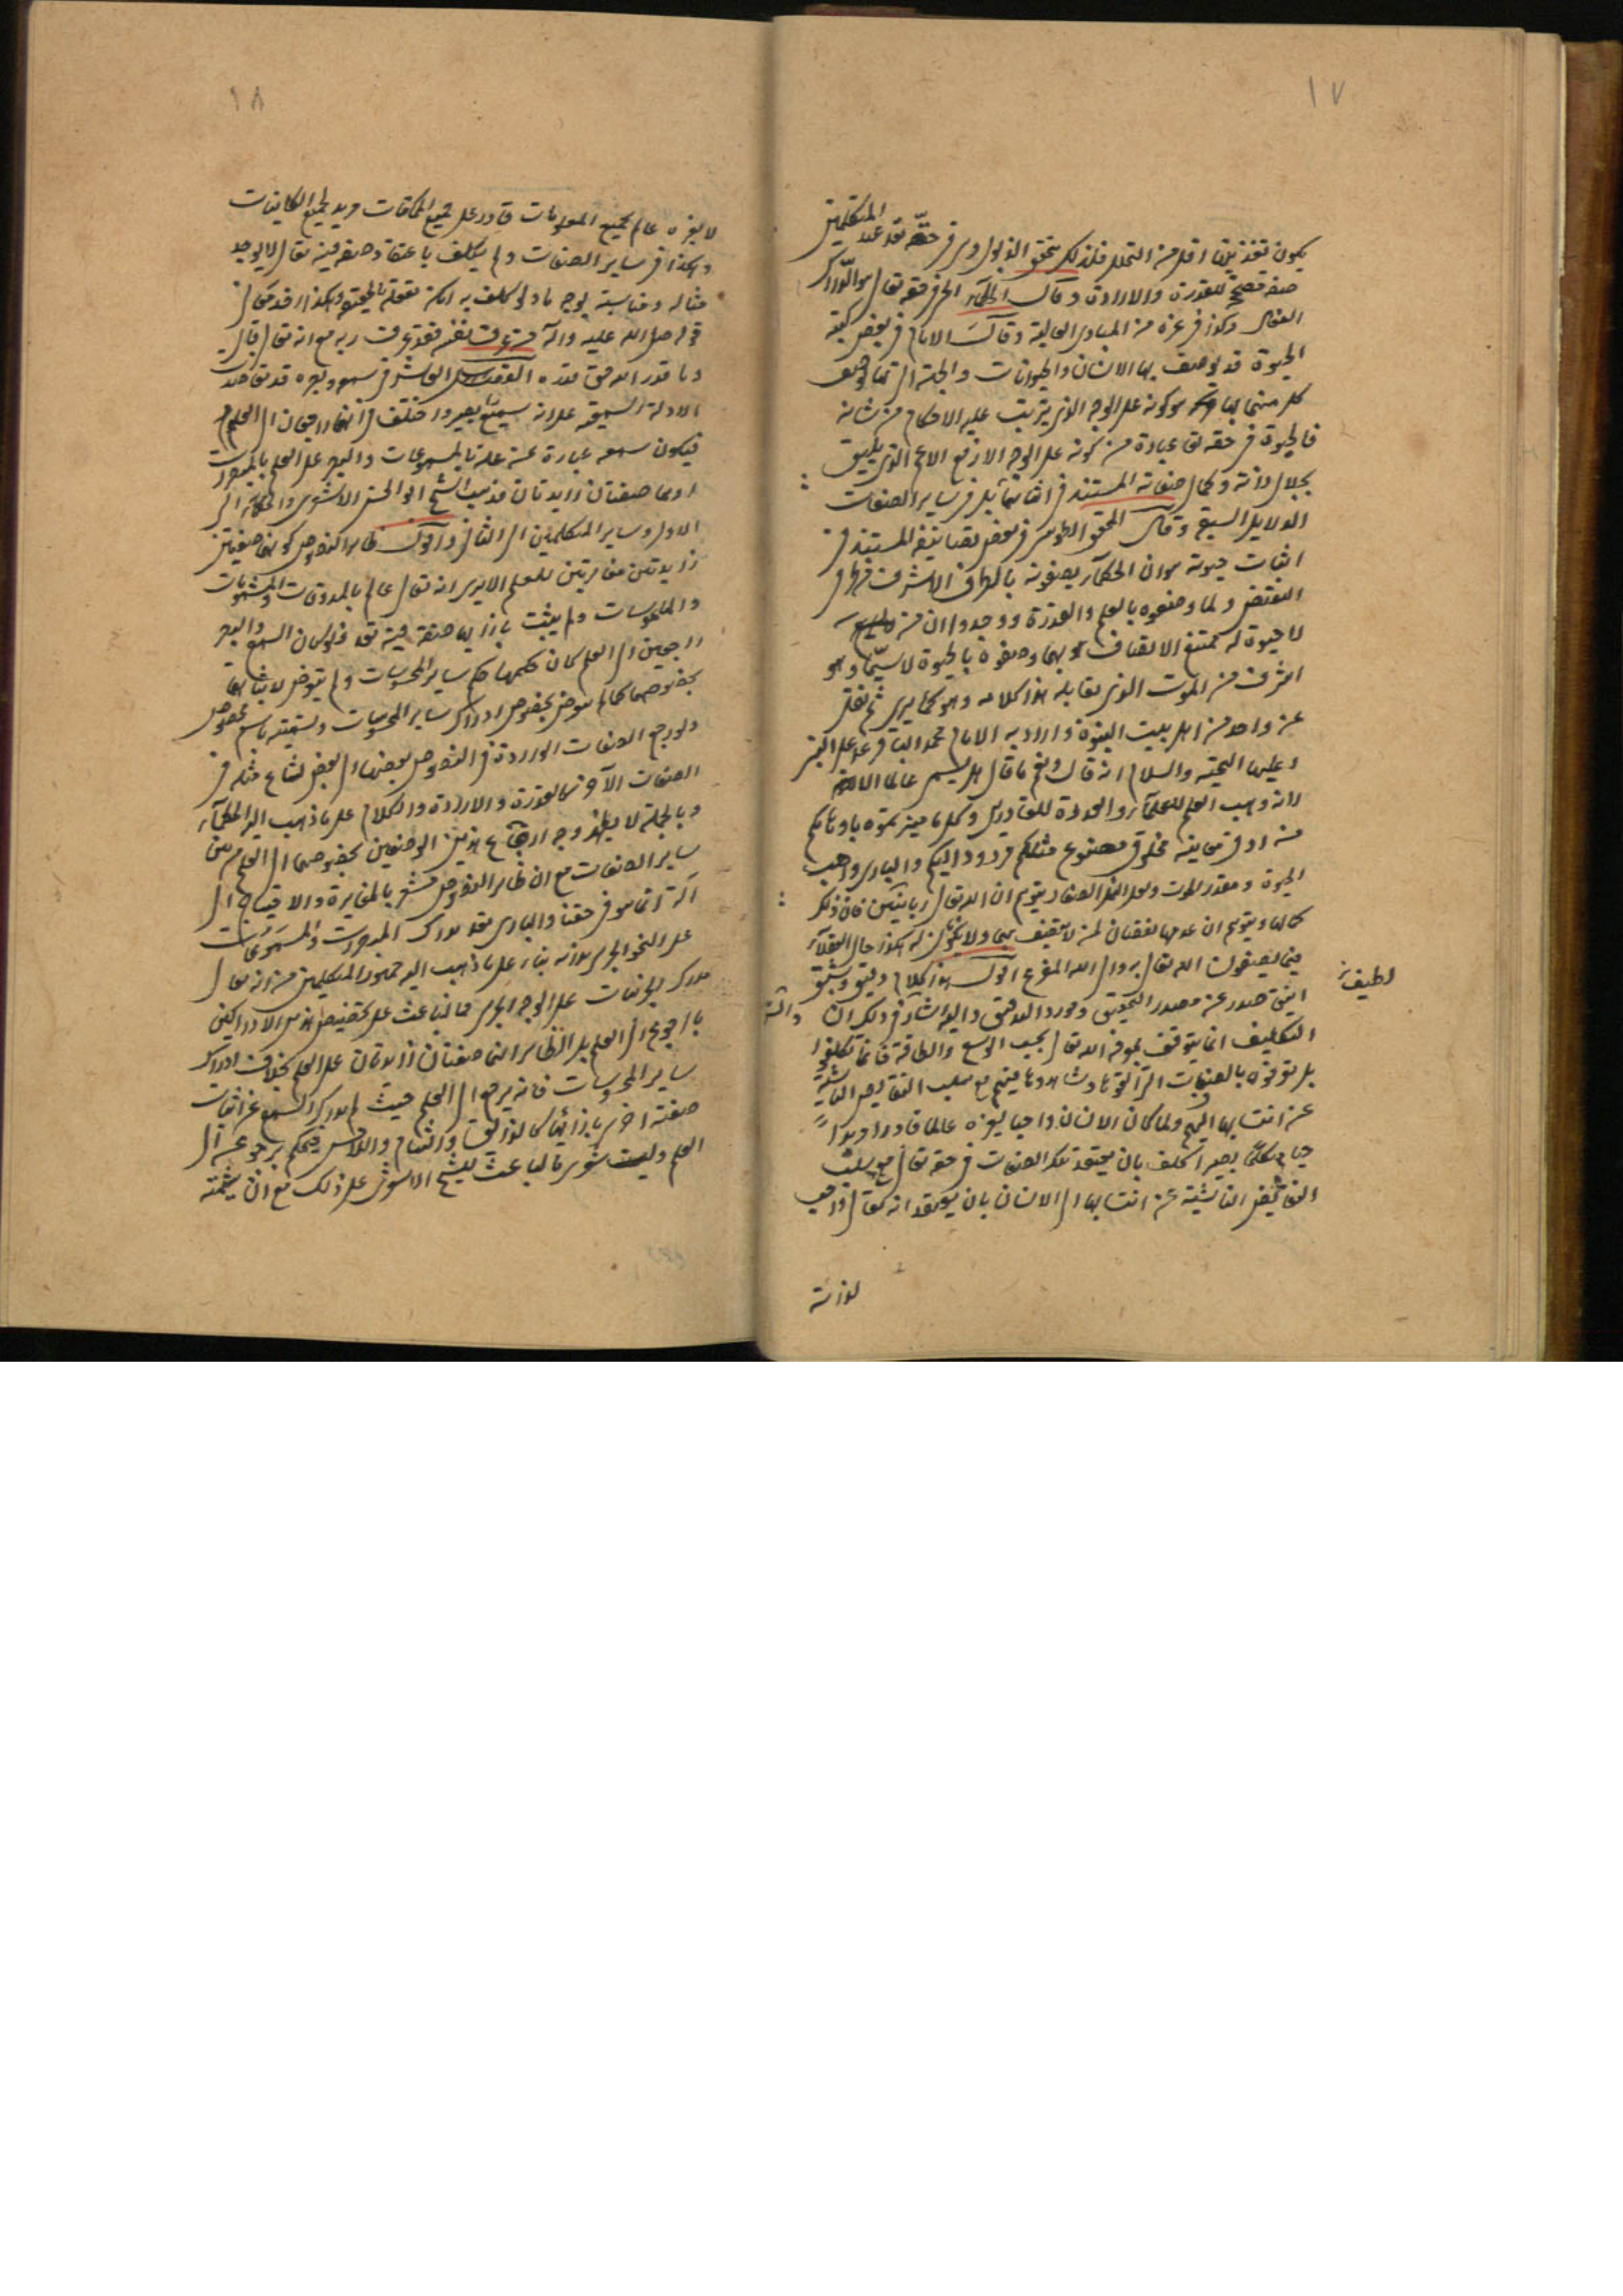 ١٧
يكون تغذيتها اقل من التحلل فلذلك يتحقق الذبول وهى فى حقه تعالى عند المتكلمين
صفة مصححة للقدرة والارادة وقال الحكماء الحى فى حقه تعالى هو الدراك
الفعال وكذا فى غيره من المبادى العالية وقال الامام فى بعض كتبه
الحيوة قد يوصف بها الانسان والحيوانات والجنة الله تعالى وصف
كل منها بها هو كونه على الوجه الذى يترتب عليه الاحكام من شانه
فالحيوة فى حقه تعالى عبارة من كونه على الوجه الارفع الاعم الذى يليق
بجلال ذاته وكمال صفاته المستند فى اثباتها بل فى ساير الصفات
الدلايل السمعية وقال المحقق الطوسى فى بعض تصانيفه المستند فى
اثبات حيوته هو ان الحكماء يصفونه بالطرف الاشرف من طرفى
النقيض ولما وصفوه بالعلم والقدرة ووجدوا ان من
لا حيوة له ممتنع الاتصاف بهما وصفوه بالحيوة لا سيما وهو
اشرف من الموت الذى يقابله هذا كلامه وهو كما يرى ثم نقل
عن واحد من اهل بيت النبوة واراد به الامام محمد الباقر عليه
وعليهم التحية والسلام انه قال ونعم ما قال هل يسمى عالما الا
لانه وهب العلم للعلماء والقدرة للقادرين وكل ما ميزتموه باوهامكم
فى ادق معانيه مخلوق مصنوع مثلكم مردود اليكم والبارى واهب
الحيوة ومقدر الموت ولعل النمل الصغار يتوهم ان لله تعالى زبانيتين فان ذلك
كمالها ويتوهم ان عدمها نقصان لمن لا يتصف بهما ولا يكونان له هكذا حال العقلاء
فيما يصفون الله تعالى به والى الله المفزع اقول هذا كلام دقيق رشيق
انيق صدر عن مصدر التحقيق ومورد التدقيق واليه اشار فى ذلك ان
لطيفة
التكليف انما يتوقف على معرفة الله تعالى بحسب الوسع والطاقة فانما كلفوا
بل يعرفوه بالصفات التى الفوها وشاهدوها فيهم مع سلب النقايص الناشية
عن انتسابها اليهم ولما كان الانسان واجبا بغيره عالما قادرا مريدا
حيا متكلما سميعا بصيرا كلف بان يعتقد تلك الصفات فى حقه تعالى مع سلب
النقايص الناشية عن انتسابها الى الانسان بان يعتقد انه تعالى واجب
لذاته
١٨
لا بغيره عالم بجميع المعلومات قادر على جميع الممكنات مريد لجميع الكاينات
وهكذا فى ساير الصفات ولم يكلف باعتقاد صفة فيه تعالى لا يوجد
مثاله ومناسبة بوجه ما ولو كلف به لما امكنه تعقله بالحقيقة وهكذا
قوله صلى الله عليه وآله من عرف نفسه فقد عرف ربه مع انه تعالى قال
وما قدروا الله حق قدره الفصل العاشر فى سمعه وبصره قد تعاضدت
الادلة السمعية على انه سميع بصير واختلف فى انهما راجعان الى العلم
فيكون سمعه عبارة عن علمه بالمسموعات والبصر على العلم بالمبصرات
او هما صفتان زايدتان فذهب الشيخ ابو الحسن الاشعرى والحكماء الى
الاول وساير المتكلمين الى الثانى واقول ظاهر النصوص كونهما صفتين
زايدتين مغايرتين للعلم الا يرى انه تعالى عالم بالمذوقات والمشمومات
والملموسات ولم يثبت بازايها صفة فيه تعالى فلو كان السمع والبصر
راجعين الى العلم كان حكمهما حكم ساير المحسوسات ولم يتعرض لاثباتهما
بخصوصهما كما لم يتعرض بخصوص ادراك ساير المحسوسات وتسميته باسم مخصوص
ولو رجع الصفات الواردة فى النصوص بعضها الى بعض لشاع مثله فى
الصفات الاخر كالقدرة والارادة والكلام على ما ذهب اليه الحكماء
وبالجملة لا يظهر وجه ارجاع هذين الوصفين بخصوصهما الى العلم من بين
ساير الصفات مع ان ظاهر النصوص مشعر بالمغايرة والاحتياج الى
آلة انما هو فى حقنا والبارى تعالى يدرك المبصرات والمسموعات
على النحو الجزئى لانه بناء على ما ذهب اليه جمهور المتكلمين من انه تعالى
مدرك للجزئيات على الوجه الجزئى فما الباعث على تخصيص هذين الادراكين
بالرجوع الى العلم بل الظاهر انهما صفتان زايدتان على العلم بخلاف ادراك
ساير المحسوسات فانه يرجع الى العلم حيث لم يدرك السمع عن اثبات
صفة اخرى بازائها كالذوق والشم واللمس فيحكم برجوعه الى
العلم وليت شعرى ما الباعث للشيخ الاشعرى على ذلك مع ان شيمته